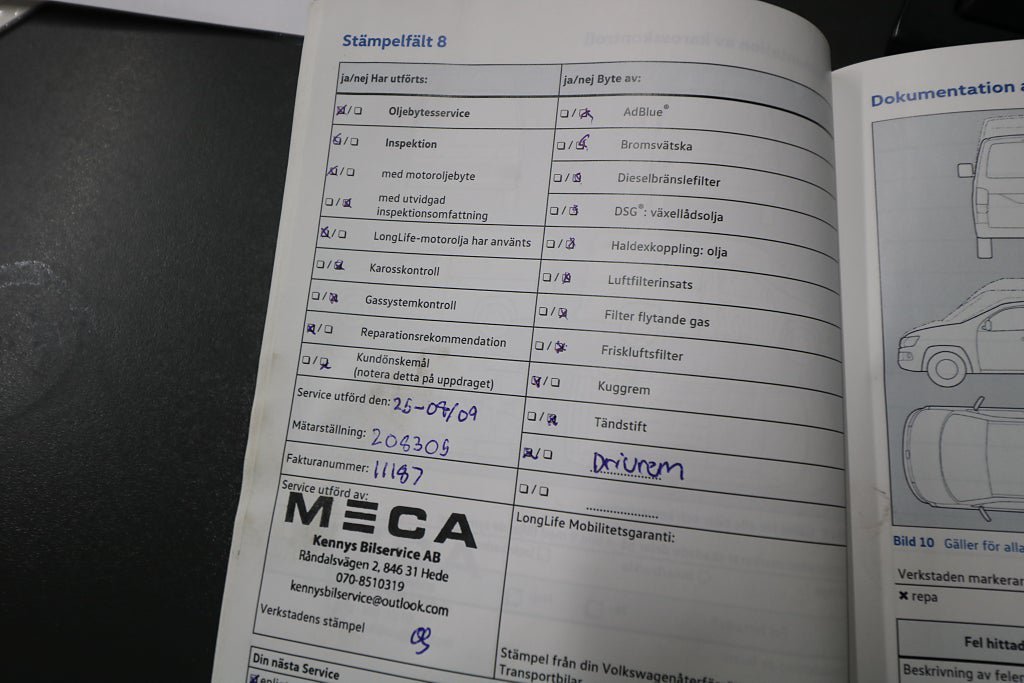 Stämpelfält 8
ja/nej Har utförts:
Oljebytesservice
Inspektion
med motoroljebyte
med utvidgad
inspektionsomfattning
LongLife-motorolja har använts
Karosskontroll
Gassystemkontroll
Reparationsrekommendation
Kundönskemål
(notera detta på uppdraget)
Service utförd den: 25-08/09
Mätarställning: 208305
Fakturanummer: 11187
Service utförd av:
MECA
Kennys Bilservice AB
Råndalsvägen 2, 846 31 Hede
070-8510319
kennysbilservice@outlook.com
Verkstadens stämpel
Din nästa Service
ja/nej Byte av:
AdBlue®
Bromsvätska
Dieselbränslefilter
DSG®: växellådsolja
Haldexkoppling: olja
Luftfilterinsats
Filter flytande gas
Friskluftsfilter
Kuggrem
Tändstift
Drivrem
LongLife Mobilitetsgaranti:
Stämpel från din
Transportbilar
Dokumentation
Bild 10 Gäller för alla
Verkstaden
× repa
Fel
Beskrivning av